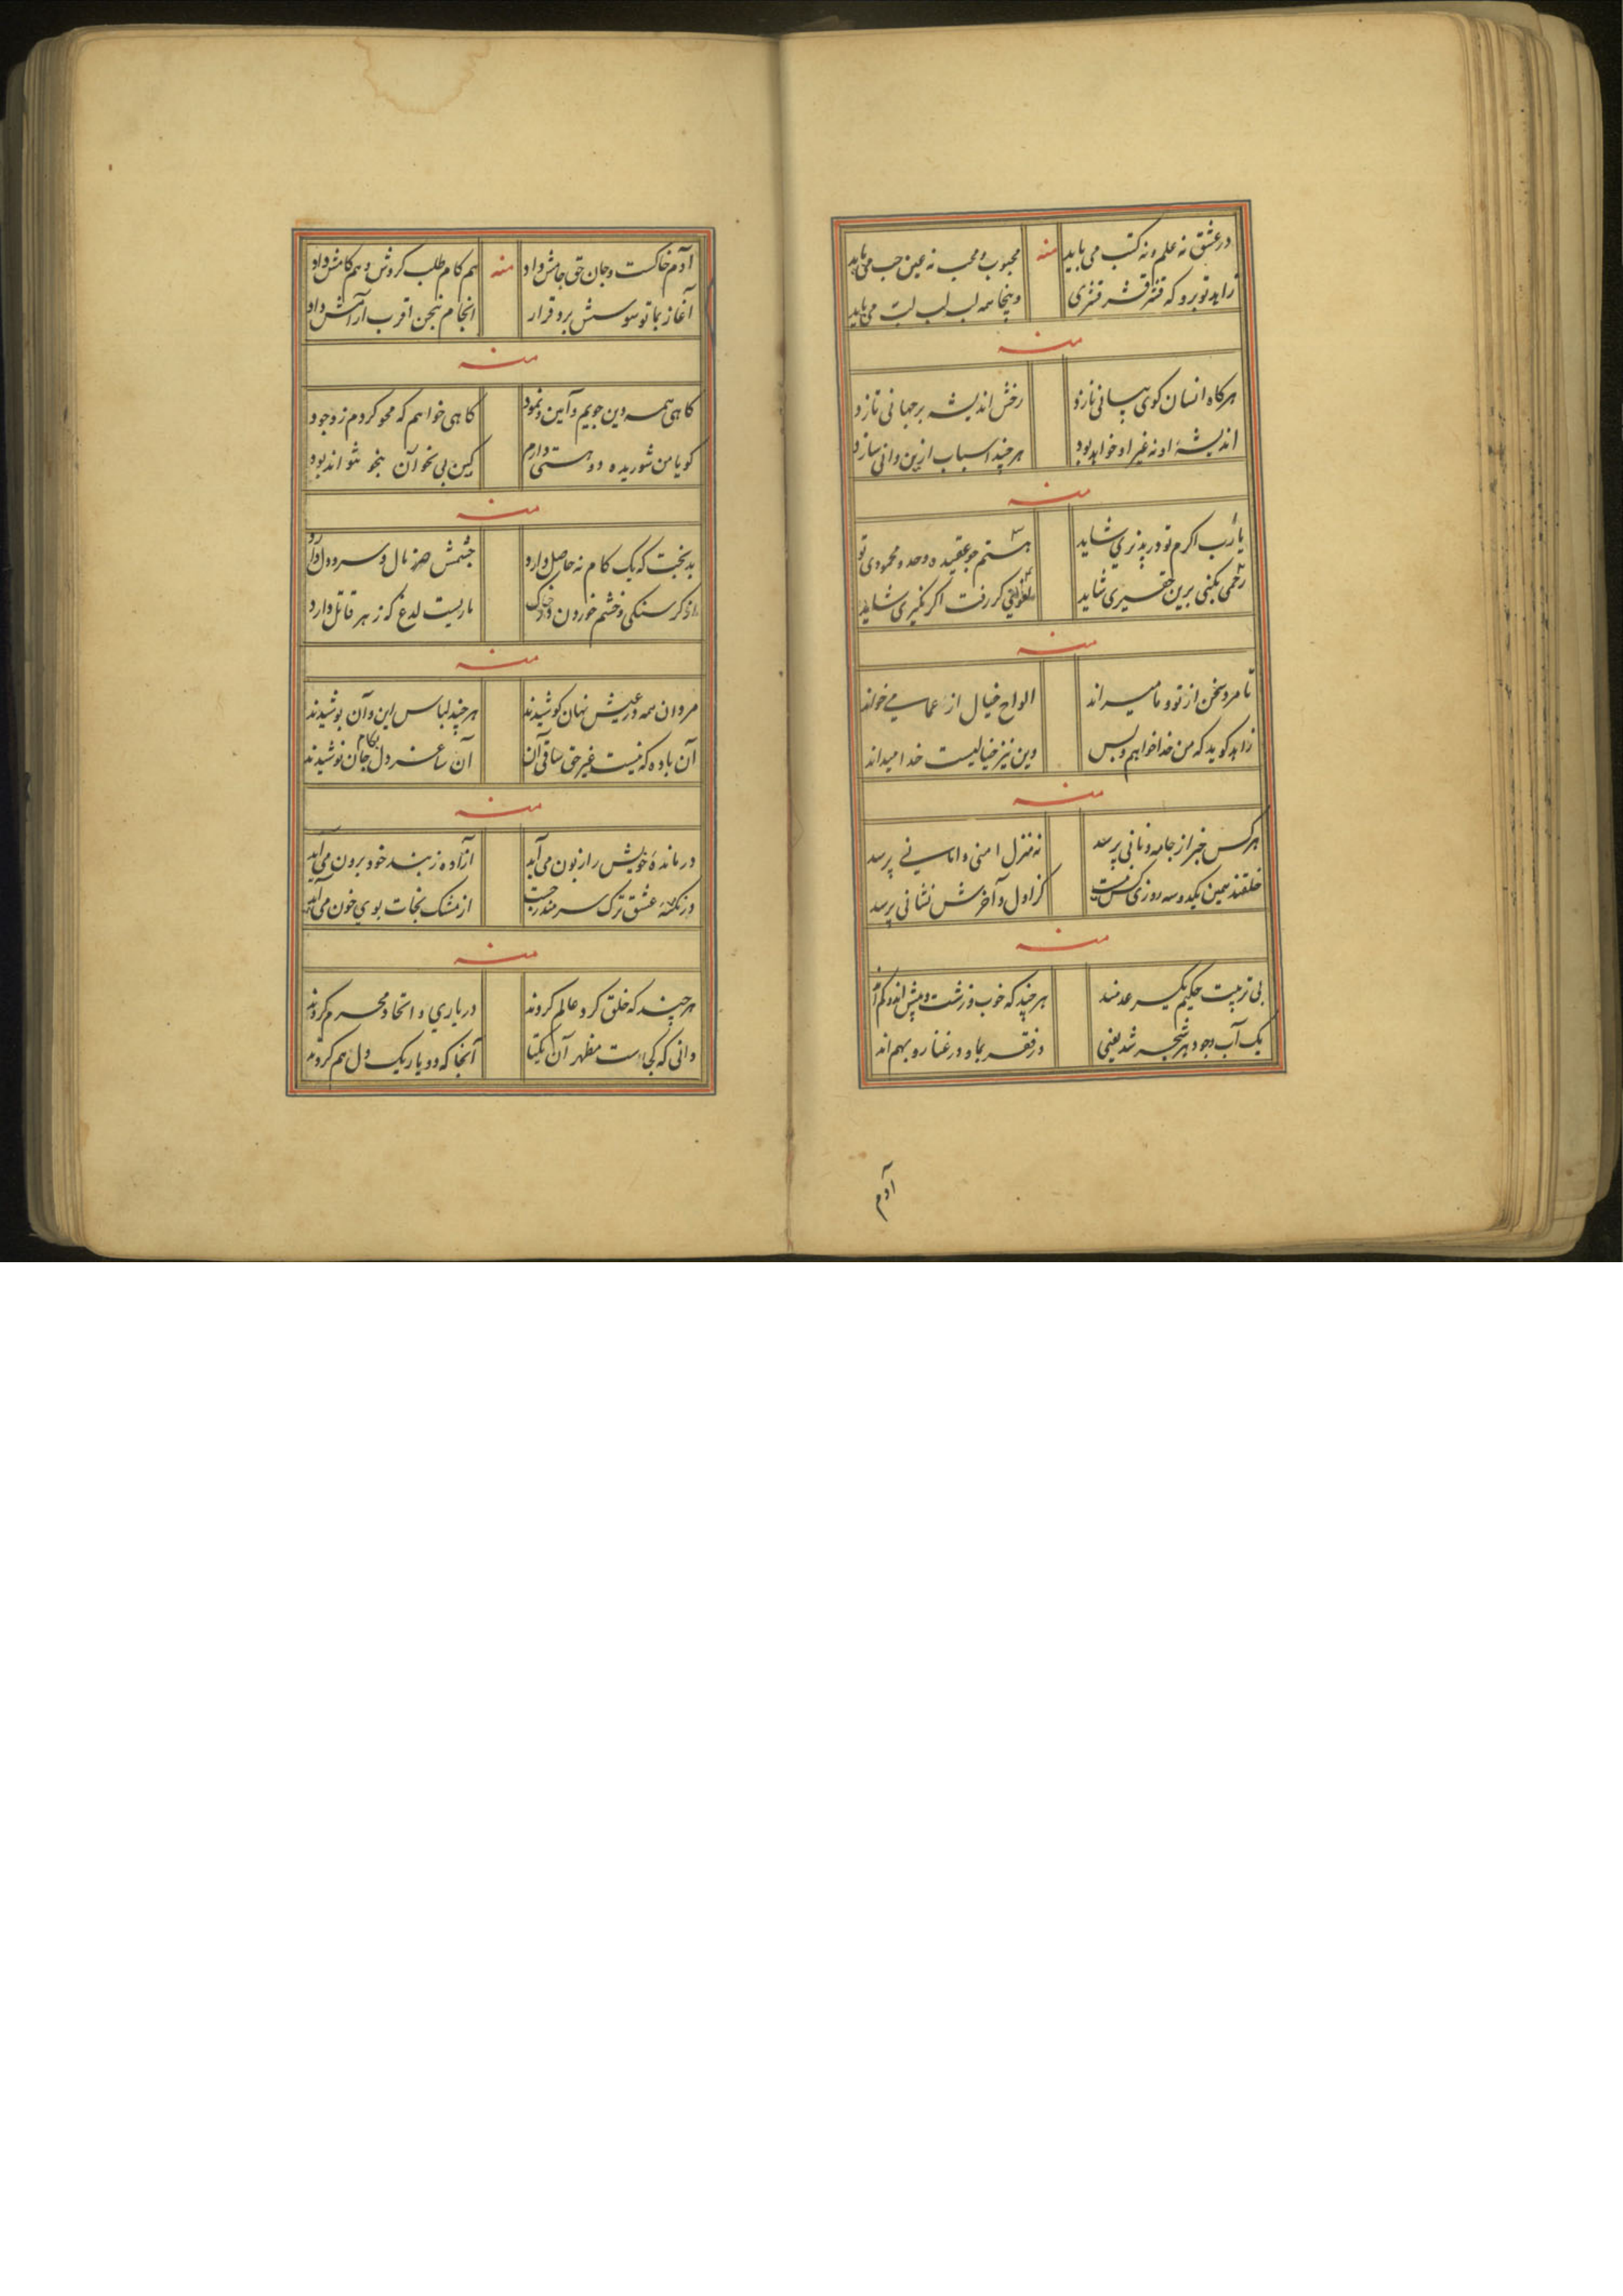 در عشق نه علم و نه کتب می باید منه محبوب و محب نه عین حب می باید
زاهد تو برو که قشر قشر قشری وینجا همه لب لب لب می باید
منه
هرکاه انسان کوی بیانی نازد رخش اندیشه بر جهانی تازد
اندیشهٔ او نه غیر او خواهد بود هرچند اسباب ازین وانی سازد
منه
یا رب اکرم تو در پذیری شاید هستم جو عقیده وحد و محمودی تو
رحمی بکنی برین حقیری شاید کر رفت اکر نکیری شاید
منه
تا مرد سخن از تو و ما میراند الواح خیال از عما می خواند
زاهد کوید که من خدا خواهم و بس وین نیز خیالیست خدا میداند
منه
هر کس خبر از جامه و نانی پرسد نه منزل امنی و امانی پرسد
خلقند همین یکدو سه روزی کزاول و آخرش نشانی پرسد
منه
بی تربیت حکیم یکسر عدمند هرچند که خوب و زشت و بیش اند و کم اند
یک آب وجود هر شجر شد یعنی در فقر بما و در غنا رو بهم اند
آدم
آدم خاکست و جان حق جامش داد منه هم کام طلب کردش و هم کامش داد
آغاز بما توسوسش برد قرار انجام بنحن اقرب آرامش داد
منه
کاهی همه دین جویم و آیین و نمود کاهی خواهم که محو کردم ز وجود
کویا من شوریده دو هستی دارم کین بی نحو آن بنحو نتواند بود
منه
بدبخت که یک کام نه حاصل دارد چشمش مال و سر و دل دارد
از کرسنکی و خشم خوردن ماریست لدغ که زهر قاتل دارد
منه
مردان همه در عیش نهان کوشیدند هرچند لباس این و آن پوشیدند
آن باده که نیست غیر حق ساقی آن آن ساغر دل بکام جان نوشیدند
منه
درماندهٔ خویش را زبون می آید ازاده ز بند خود برون می آید
در نکتهٔ عشق ترک سر مندرجست از مشک نجات بوی خون می آید
منه
هرچند که خلق کرد عالم کردند در یاری و اتحاد محرم کردند
دانی که کجاست مظهر آن یکتا آنجا که دو یار یک دل هم کردند